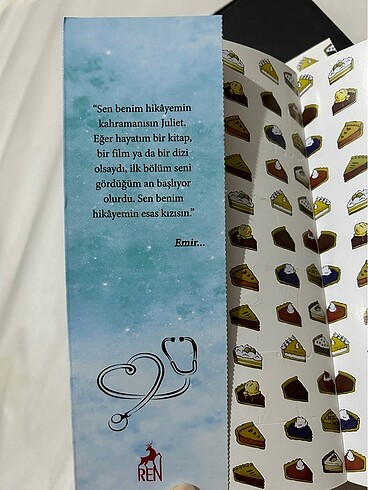 “Sen benim hikâyemin
kahramanısın Juliet.
Eğer hayatım bir kitap,
bir film ya da bir dizi
olsaydı, ilk bölüm seni
gördüğüm an başlıyor
olurdu. Sen benim
hikâyemin esas kızısın.”
Emir...
REN